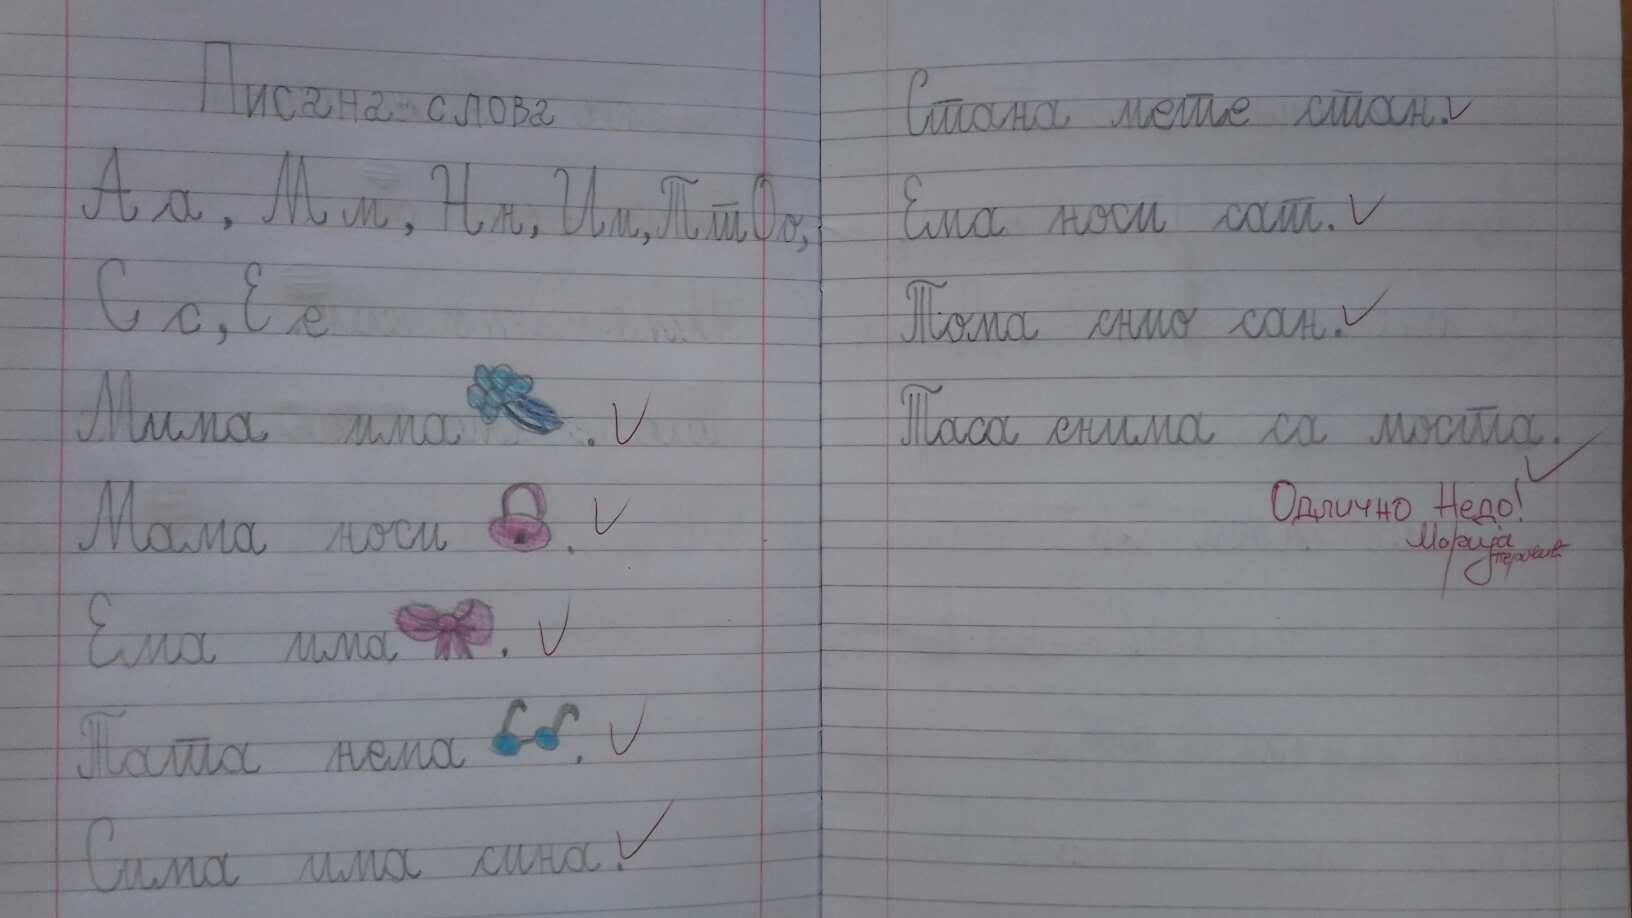 Писана слова
А а, М м, Н н, И и, Т т О о,
С с, Е е
Мима има .
Мама носи .
Ема има .
Тата нема .
Сима има сина.
Стана мете стан.
Ема носи сат.
Тома снио сан.
Таса снима са моста.
Одлично Недо!
Марија